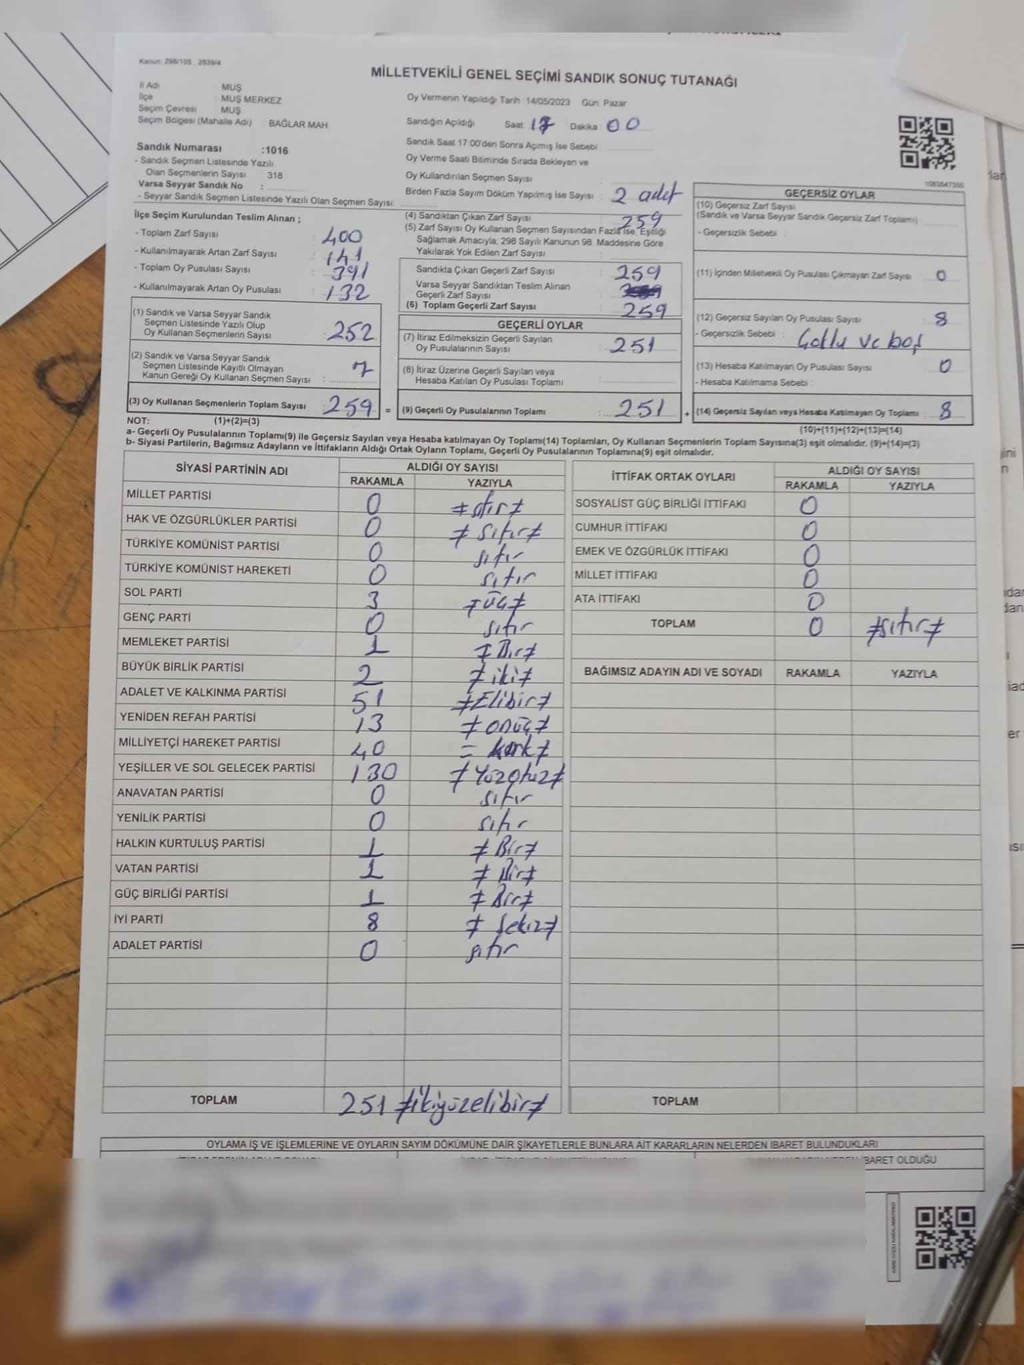 Kanun: 298/105 , 2839/4
MİLLETVEKİLİ GENEL SEÇİMİ SANDIK SONUÇ TUTANAĞI
İl Adı : MUŞ
İlçe : MUŞ MERKEZ
Seçim Çevresi : MUŞ
Seçim Bölgesi (Mahalle Adı) : BAĞLAR MAH
Sandık Numarası :1016
- Sandık Seçmen Listesinde Yazılı
Olan Seçmenlerin Sayısı : 318
Varsa Seyyar Sandık No :
- Seyyar Sandık Seçmen Listesinde Yazılı Olan Seçmen Sayısı :
Oy Vermenin Yapıldığı Tarih :14/05/2023 Gün: Pazar
Sandığın Açıldığı Saat: 17 Dakika: 00
Sandık Saat 17:00'den Sonra Açılmış İse Sebebi :
Oy Verme Saati Bitiminde Sırada Bekleyen ve
Oy Kullandırılan Seçmen Sayısı :
Birden Fazla Sayım Döküm Yapılmış İse Sayısı : 2 adet
1083547355
İlçe Seçim Kurulundan Teslim Alınan ;
- Toplam Zarf Sayısı : 400
- Kullanılmayarak Artan Zarf Sayısı : 141
- Toplam Oy Pusulası Sayısı : 391
- Kullanılmayarak Artan Oy Pusulası : 132
(1) Sandık ve Varsa Seyyar Sandık
Seçmen Listesinde Yazılı Olup
Oy Kullanan Seçmenlerin Sayısı : 252
(2) Sandık ve Varsa Seyyar Sandık
Seçmen Listesinde Kayıtlı Olmayan
Kanun Gereği Oy Kullanan Seçmen Sayısı : 7
(3) Oy Kullanan Seçmenlerin Toplam Sayısı : 259 =
(1)+(2)=(3)
(4) Sandıktan Çıkan Zarf Sayısı : 259
(5) Zarf Sayısı Oy Kullanan Seçmen Sayısından Fazla İse, Eşitliği
Sağlamak Amacıyla; 298 Sayılı Kanunun 98. Maddesine Göre
Yakılarak Yok Edilen Zarf Sayısı :
Sandıkta Çıkan Geçerli Zarf Sayısı : 259
Varsa Seyyar Sandıktan Teslim Alınan
Geçerli Zarf Sayısı :
(6) Toplam Geçerli Zarf Sayısı : 259
GEÇERLİ OYLAR
(7) İtiraz Edilmeksizin Geçerli Sayılan
Oy Pusulalarının Sayısı : 251
(8) İtiraz Üzerine Geçerli Sayılan veya
Hesaba Katılan Oy Pusulası Toplamı :
(9) Geçerli Oy Pusulalarının Toplamı : 251 +
GEÇERSİZ OYLAR
(10) Geçersiz Zarf Sayısı
(Sandık ve Varsa Seyyar Sandık Geçersiz Zarf Toplamı) :
- Geçersizlik Sebebi :
(11) İçinden Milletvekili Oy Pusulası Çıkmayan Zarf Sayısı : 0
(12) Geçersiz Sayılan Oy Pusulası Sayısı : 8
- Geçersizlik Sebebi : Çoklu ve boş
(13) Hesaba Katılmayan Oy Pusulası Sayısı : 0
- Hesaba Katılmama Sebebi :
(14) Geçersiz Sayılan veya Hesaba Katılmayan Oy Toplamı : 8
(10)+(11)+(12)+(13)=(14)
NOT:
a- Geçerli Oy Pusulalarının Toplamı(9) ile Geçersiz Sayılan veya Hesaba katılmayan Oy Toplamı(14) Toplamları, Oy Kullanan Seçmenlerin Toplam Sayısına(3) eşit olmalıdır. (9)+(14)=(3)
b- Siyasi Partilerin, Bağımsız Adayların ve İttifakların Aldığı Ortak Oyların Toplamı, Geçerli Oy Pusulalarının Toplamına(9) eşit olmalıdır.
SİYASİ PARTİNİN ADI ALDIĞI OY SAYISI
RAKAMLA YAZIYLA
MİLLET PARTİSİ 0 ≠ sıfır ≠
HAK VE ÖZGÜRLÜKLER PARTİSİ 0 ≠ sıfır ≠
TÜRKİYE KOMÜNİST PARTİSİ 0 sıfır
TÜRKİYE KOMÜNİST HAREKETİ 0 sıfır
SOL PARTİ 3 ≠ üç ≠
GENÇ PARTİ 0 sıfır
MEMLEKET PARTİSİ 1 ≠ Bir ≠
BÜYÜK BİRLİK PARTİSİ 2 ≠ iki ≠
ADALET VE KALKINMA PARTİSİ 51 ≠ Elibir ≠
YENİDEN REFAH PARTİSİ 13 ≠ onüç ≠
MİLLİYETÇİ HAREKET PARTİSİ 40 = kırk ≠
YEŞİLLER VE SOL GELECEK PARTİSİ 130 ≠ Yüzotuz ≠
ANAVATAN PARTİSİ 0 sıfır
YENİLİK PARTİSİ 0 sıfır
HALKIN KURTULUŞ PARTİSİ 1 ≠ Bir ≠
VATAN PARTİSİ 1 ≠ Bir ≠
GÜÇ BİRLİĞİ PARTİSİ 1 ≠ Bir ≠
İYİ PARTİ 8 ≠ Sekiz ≠
ADALET PARTİSİ 0 sıfır
TOPLAM 251 ≠ ikiyüzelibir ≠
İTTİFAK ORTAK OYLARI ALDIĞI OY SAYISI
RAKAMLA YAZIYLA
SOSYALİST GÜÇ BİRLİĞİ İTTİFAKI 0
CUMHUR İTTİFAKI 0
EMEK VE ÖZGÜRLÜK İTTİFAKI 0
MİLLET İTTİFAKI 0
ATA İTTİFAKI 0
TOPLAM 0 ≠ sıfır ≠
BAĞIMSIZ ADAYIN ADI VE SOYADI RAKAMLA YAZIYLA
TOPLAM
OYLAMA İŞ VE İŞLEMLERİNE VE OYLARIN SAYIM DÖKÜMÜNE DAİR ŞİKAYETLERLE BUNLARA AİT KARARLARIN NELERDEN İBARET BULUNDUKLARI
İBARET OLDUĞU